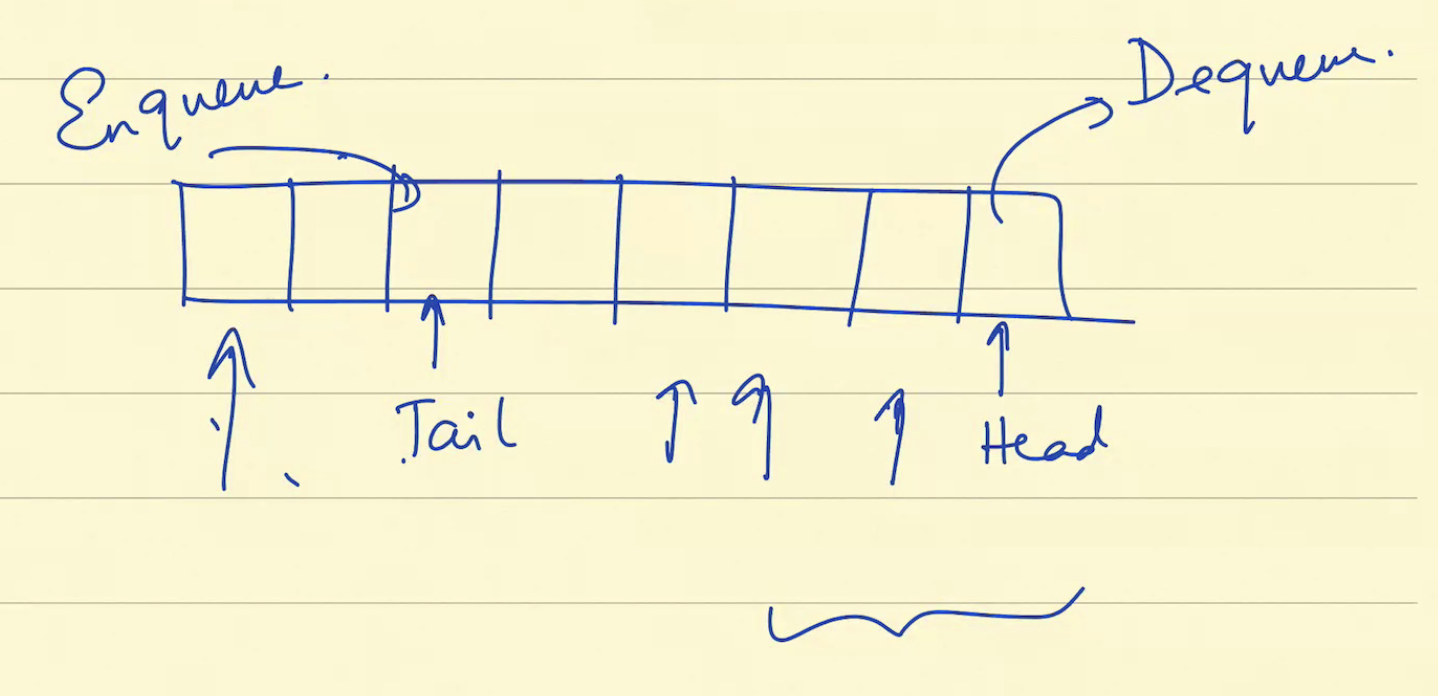 Enqueue.
Dequeue.
Tail
Head